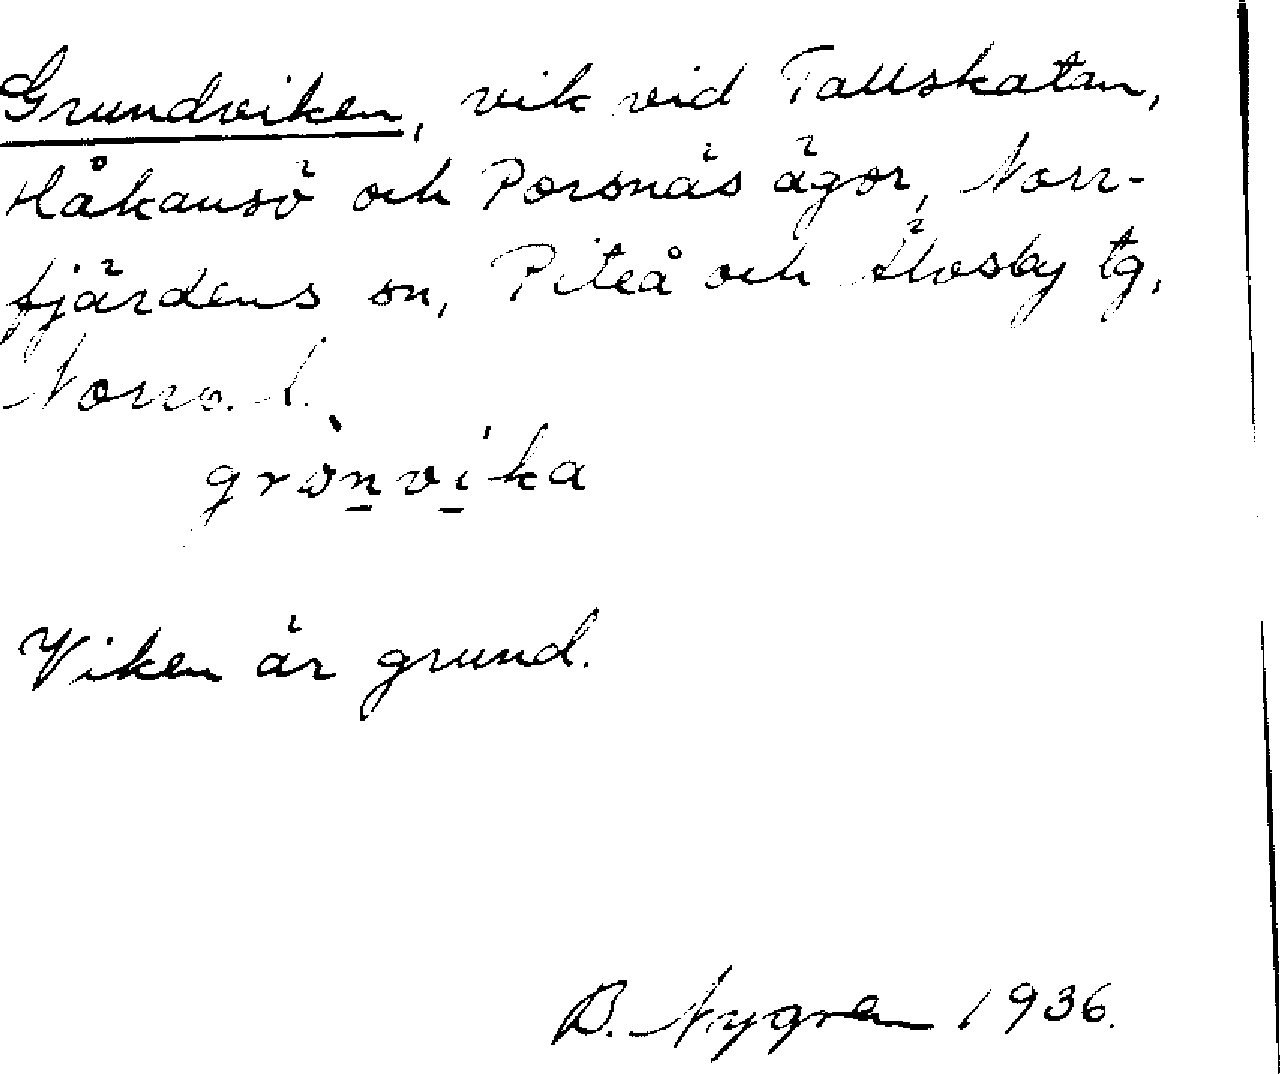 Grundviken, vik vid Tallskatan,
Håkansö och Porsnäs ägor, Norr-
fjärdens sn, Piteå och Älvsby tg,
Norrb. l.
grònvíka
Viken är grund.
B. Nygren 1936.